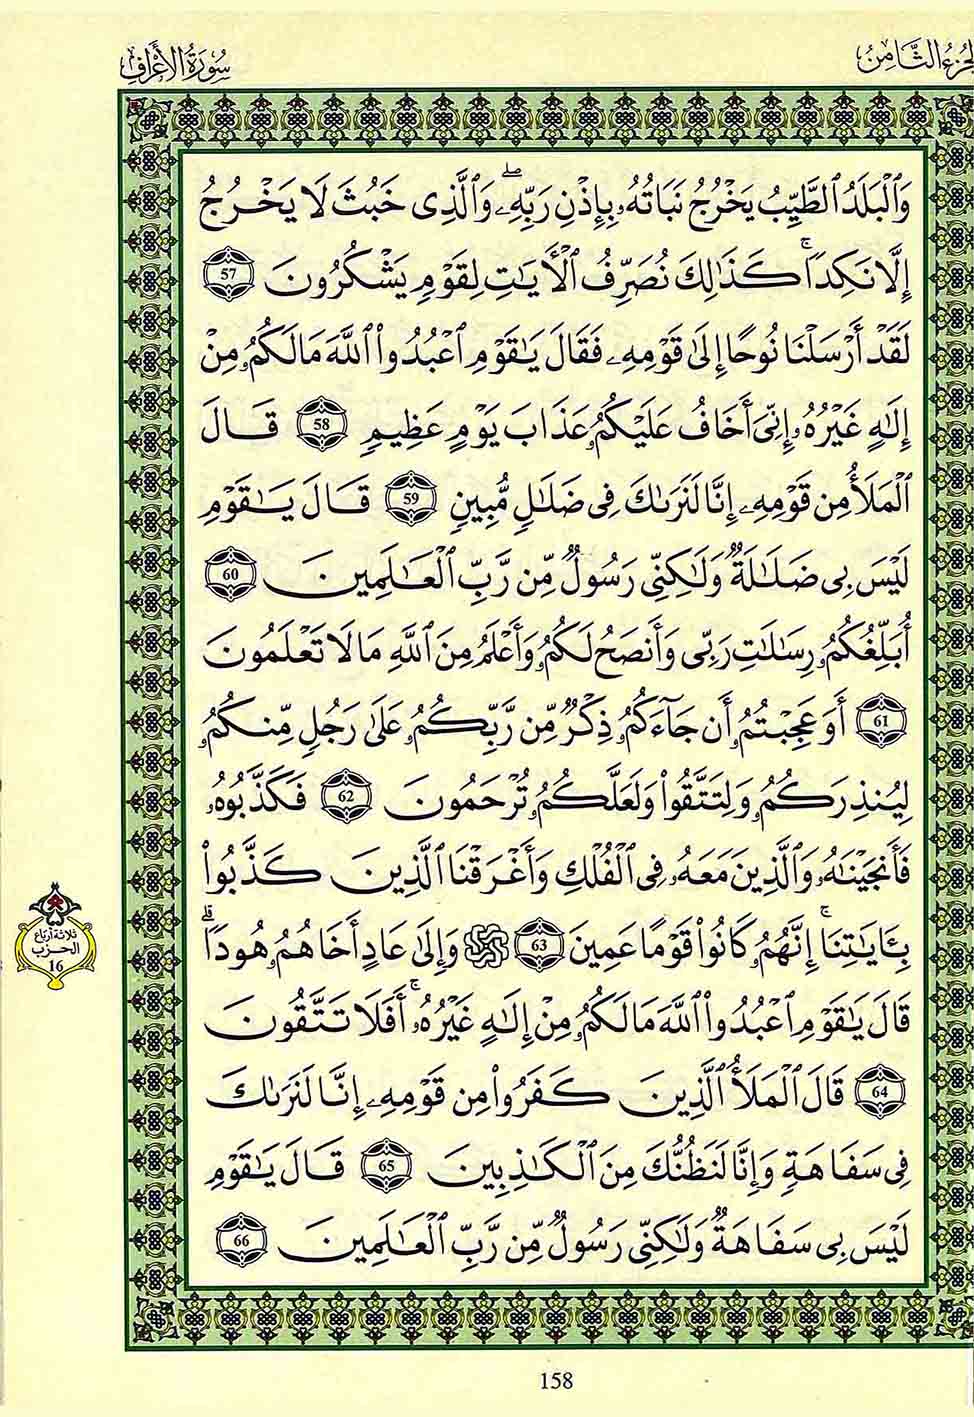 الجزء الثامن
سورة الأعراف
وَٱلْبَلَدُ ٱلطَّيِّبُ يَخْرُجُ نَبَاتُهُۥ بِإِذْنِ رَبِّهِۦۖ وَٱلَّذِى خَبُثَ لَا يَخْرُجُ
إِلَّا نَكِدًاۚ كَذَٰلِكَ نُصَرِّفُ ٱلْأَيَٰتِ لِقَوْمٍ يَشْكُرُونَ 57
لَقَدْ أَرْسَلْنَا نُوحًا إِلَىٰ قَوْمِهِۦ فَقَالَ يَٰقَوْمِ ٱعْبُدُوا۟ ٱللَّهَ مَا لَكُمُۥ مِنْ
إِلَٰهٍ غَيْرُهُۥ إِنِّىَ أَخَافُ عَلَيْكُمُۥ عَذَابَ يَوْمٍ عَظِيمٍ 58 قَالَ
ٱلْمَلَأُ مِن قَوْمِهِۦ إِنَّا لَنَرَىٰكَ فِى ضَلَٰلٍ مُّبِينٍ 59 قَالَ يَٰقَوْمِ
لَيْسَ بِى ضَلَٰلَةٌ وَلَٰكِنِّى رَسُولٌ مِّن رَّبِّ ٱلْعَٰلَمِينَ 60
أُبَلِّغُكُمُۥ رِسَٰلَٰتِ رَبِّى وَأَنصَحُ لَكُمُۥ وَأَعْلَمُ مِنَ ٱللَّهِ مَا لَا تَعْلَمُونَ
61 أَوَعَجِبْتُمُۥ أَن جَآءَكُمُۥ ذِكْرٌ مِّن رَّبِّكُمُۥ عَلَىٰ رَجُلٍ مِّنكُمُۥ
لِيُنذِرَكُمُۥ وَلِتَتَّقُوا۟ وَلَعَلَّكُمُۥ تُرْحَمُونَ 62 فَكَذَّبُوهُۥ
فَأَنجَيْنَٰهُۥ وَٱلَّذِينَ مَعَهُۥ فِى ٱلْفُلْكِ وَأَغْرَقْنَا ٱلَّذِينَ كَذَّبُوا۟
بِـَٔايَٰتِنَاۚ إِنَّهُمُۥ كَانُوا۟ قَوْمًا عَمِينَ 63 وَإِلَىٰ عَادٍ أَخَاهُمُۥ هُودًاۗ
قَالَ يَٰقَوْمِ ٱعْبُدُوا۟ ٱللَّهَ مَا لَكُمُۥ مِنْ إِلَٰهٍ غَيْرُهُۥۚ أَفَلَا تَتَّقُونَ
64 قَالَ ٱلْمَلَأُ ٱلَّذِينَ كَفَرُوا۟ مِن قَوْمِهِۦ إِنَّا لَنَرَىٰكَ
فِى سَفَاهَةٍ وَإِنَّا لَنَظُنُّكَ مِنَ ٱلْكَٰذِبِينَ 65 قَالَ يَٰقَوْمِ
لَيْسَ بِى سَفَاهَةٌ وَلَٰكِنِّى رَسُولٌ مِّن رَّبِّ ٱلْعَٰلَمِينَ 66
ثلاثة أرباع
الحزب
16
158